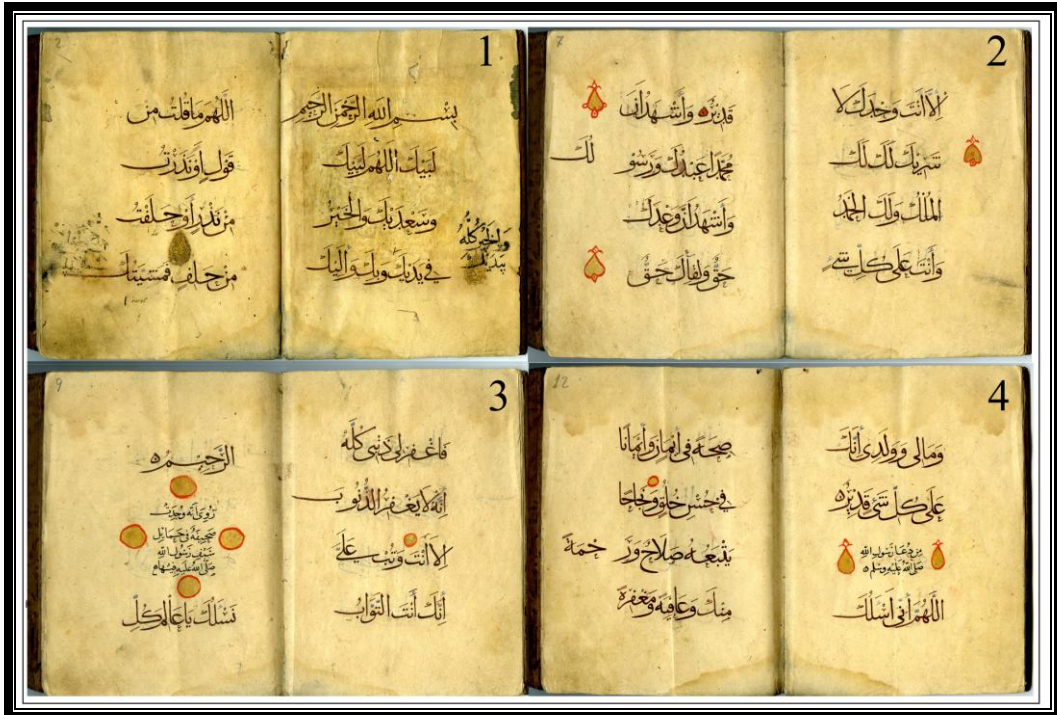 1
2
بسم الله الرحمن الرحيم
لبيك اللهم لبيك
وسعديك والخير
في يديك وبك واليك
والخير كله
بيديك
اللهم ما قلت من
قول أو نذرت
من نذر أو حلفت
من حلف فمشيتك
2
7
إلا أنت وحدك لا
شريك لك لك
الملك ولك الحمد
وأنت على كل شي
قدير وأشهد أن
محمدا عبدك ورسو لك
وأشهد أن وعدك
حق ولقاك حق
3
9
فاغفر لي ذنبي كله
إنه لا يغفر الذنوب
إلا أنت وتب علي
إنك أنت التواب
الرحيم
روي أنه وجدت
صحيفة في حمايل
سيف رسول الله
صلى الله عليه فيها
نسئلك يا عالم كل
4
12
ومالي وولدي إنك
على كل شي قدير
من دعا رسول الله
صلى الله عليه وسلم
اللهم أني اسلك
صحة في ايمان وايمانا
في حسن خلق ونجاحا
يتبعه صلاح ور حمة
منك وعافية ومغفرة